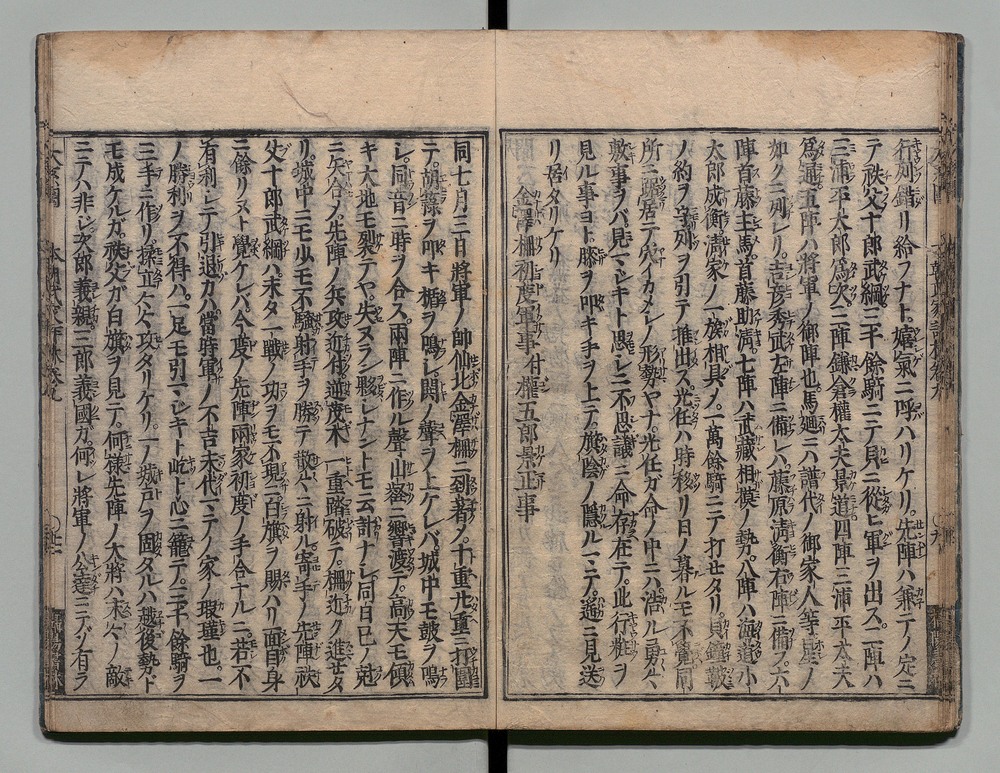 行列錯リ給フナト。嬉氣ニ呼ハリケリ。先陣ハ兼テノ定ニ
テ秩父十郎武綱三千餘騎ニテ見ニ從ヒ軍ヲ出ス。二陣ハ
三浦平太郎爲次。三陣鎌倉權太夫景道。四陣三浦平太夫
爲通。五陣ハ將軍ノ御陣也。馬廻ニハ譜代ノ御家人等星ノ
如クニ列レリ。吉彦秀武左陣ニ備レバ。藤原淸衡右陣ニ備フ。六
陣首藤主馬首藤助淸。七陣ハ武藏相摸ノ勢。八陣ハ海道小
太郎成衡。淸家ノ一族相具メ。一萬餘騎ニテ打出タリ。貝鐘皷
ノ約ヲ守列ヲ引テ推出ス。光任ハ時移リ日ノ暮ルモ不覺同
所ニ踞居テ。穴イカメシノ形勢ヤナ。光任ガ命ノ中ニ。浩ル勇々
敷事ヲバ見マジキト思シニ。不思議ニ命存在テ。此行粧ヲ
見ル事ヨト。膝ヲ叩キ手ヲ上テ。旗陰ノ隱ルヽマデ。遙ニ見送
リ居タリケリ
金澤柵初度軍事付權五郎景正事
同七月三日將軍ノ帥仙北金澤柵ニ到著ノ。十重廿重ニ打圍
テ。胡籙ヲ叩キ楯ヲ鳴シ。鬨ノ聲ヲ上ケレバ。城中モ皷ヲ鳴
シ。同音ニ時ヲ合ス。兩陣ニ作ル聲。山谷ニ響渡テ。高天モ傾
キ大地モ裂テヤ。失ヌラシ夥シナントモ云計ナシ。同日巳ノ剋
ニ矢合メ。先陣ノ兵攻近付。逆茂木一重踏破テ。柵近ク進セタ
リ。城中ニモルモ不騷。射手ヲ勝テ散々ニ射ル。寄手ノ先陣秩
父十郎武綱ハ。未タ一戰ノ功ヲモ不現ニ。白旗ヲ賜ハリ面目身
ニ餘リヌト覺ケレバ。今度ノ先陣兩家初度ノ手合ナルニ。若不
有利シテ引退カバ。當時軍ノ不吉末代マテノ家ノ瑕瑾也。一
ノ勝利ヲ不得ハ。一足モ引マジキト。屹ト心ニ籠テ。三千餘騎ヲ
三手ニ作リ。揉立々々攻タリケリ。一ノ城戸ヲ固タルハ。越後勢ト
モ成ケルガ。秩父ガ白旗ヲ見テ。何樣先陣ノ大將ハ。未々ノ敵
ニテハ非ジ。次郎義親。三郎義國カ。何レ將軍ノ公達ニテゾ有ラ